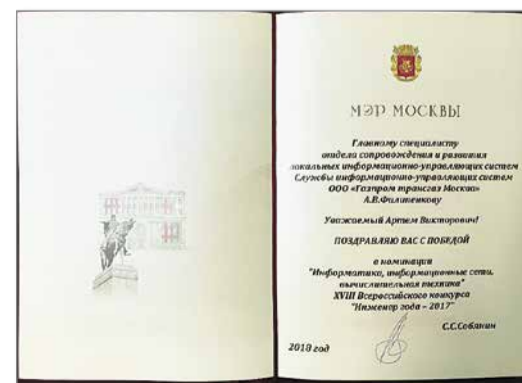 МЭР МОСКВЫ
Главному специалисту
отдела сопровождения и развития
локальных информационно-управляющих систем
Службы информационно-управляющих систем
ООО «Газпром трансгаз Москва»
А.В.Филипенкову
Уважаемый Артем Викторович!
ПОЗДРАВЛЯЮ ВАС С ПОБЕДОЙ
в номинации
"Информатика, информационные сети,
вычислительная техника"
XVIII Всероссийского конкурса
"Инженер года – 2017"
С.С.Собянин
2018 год